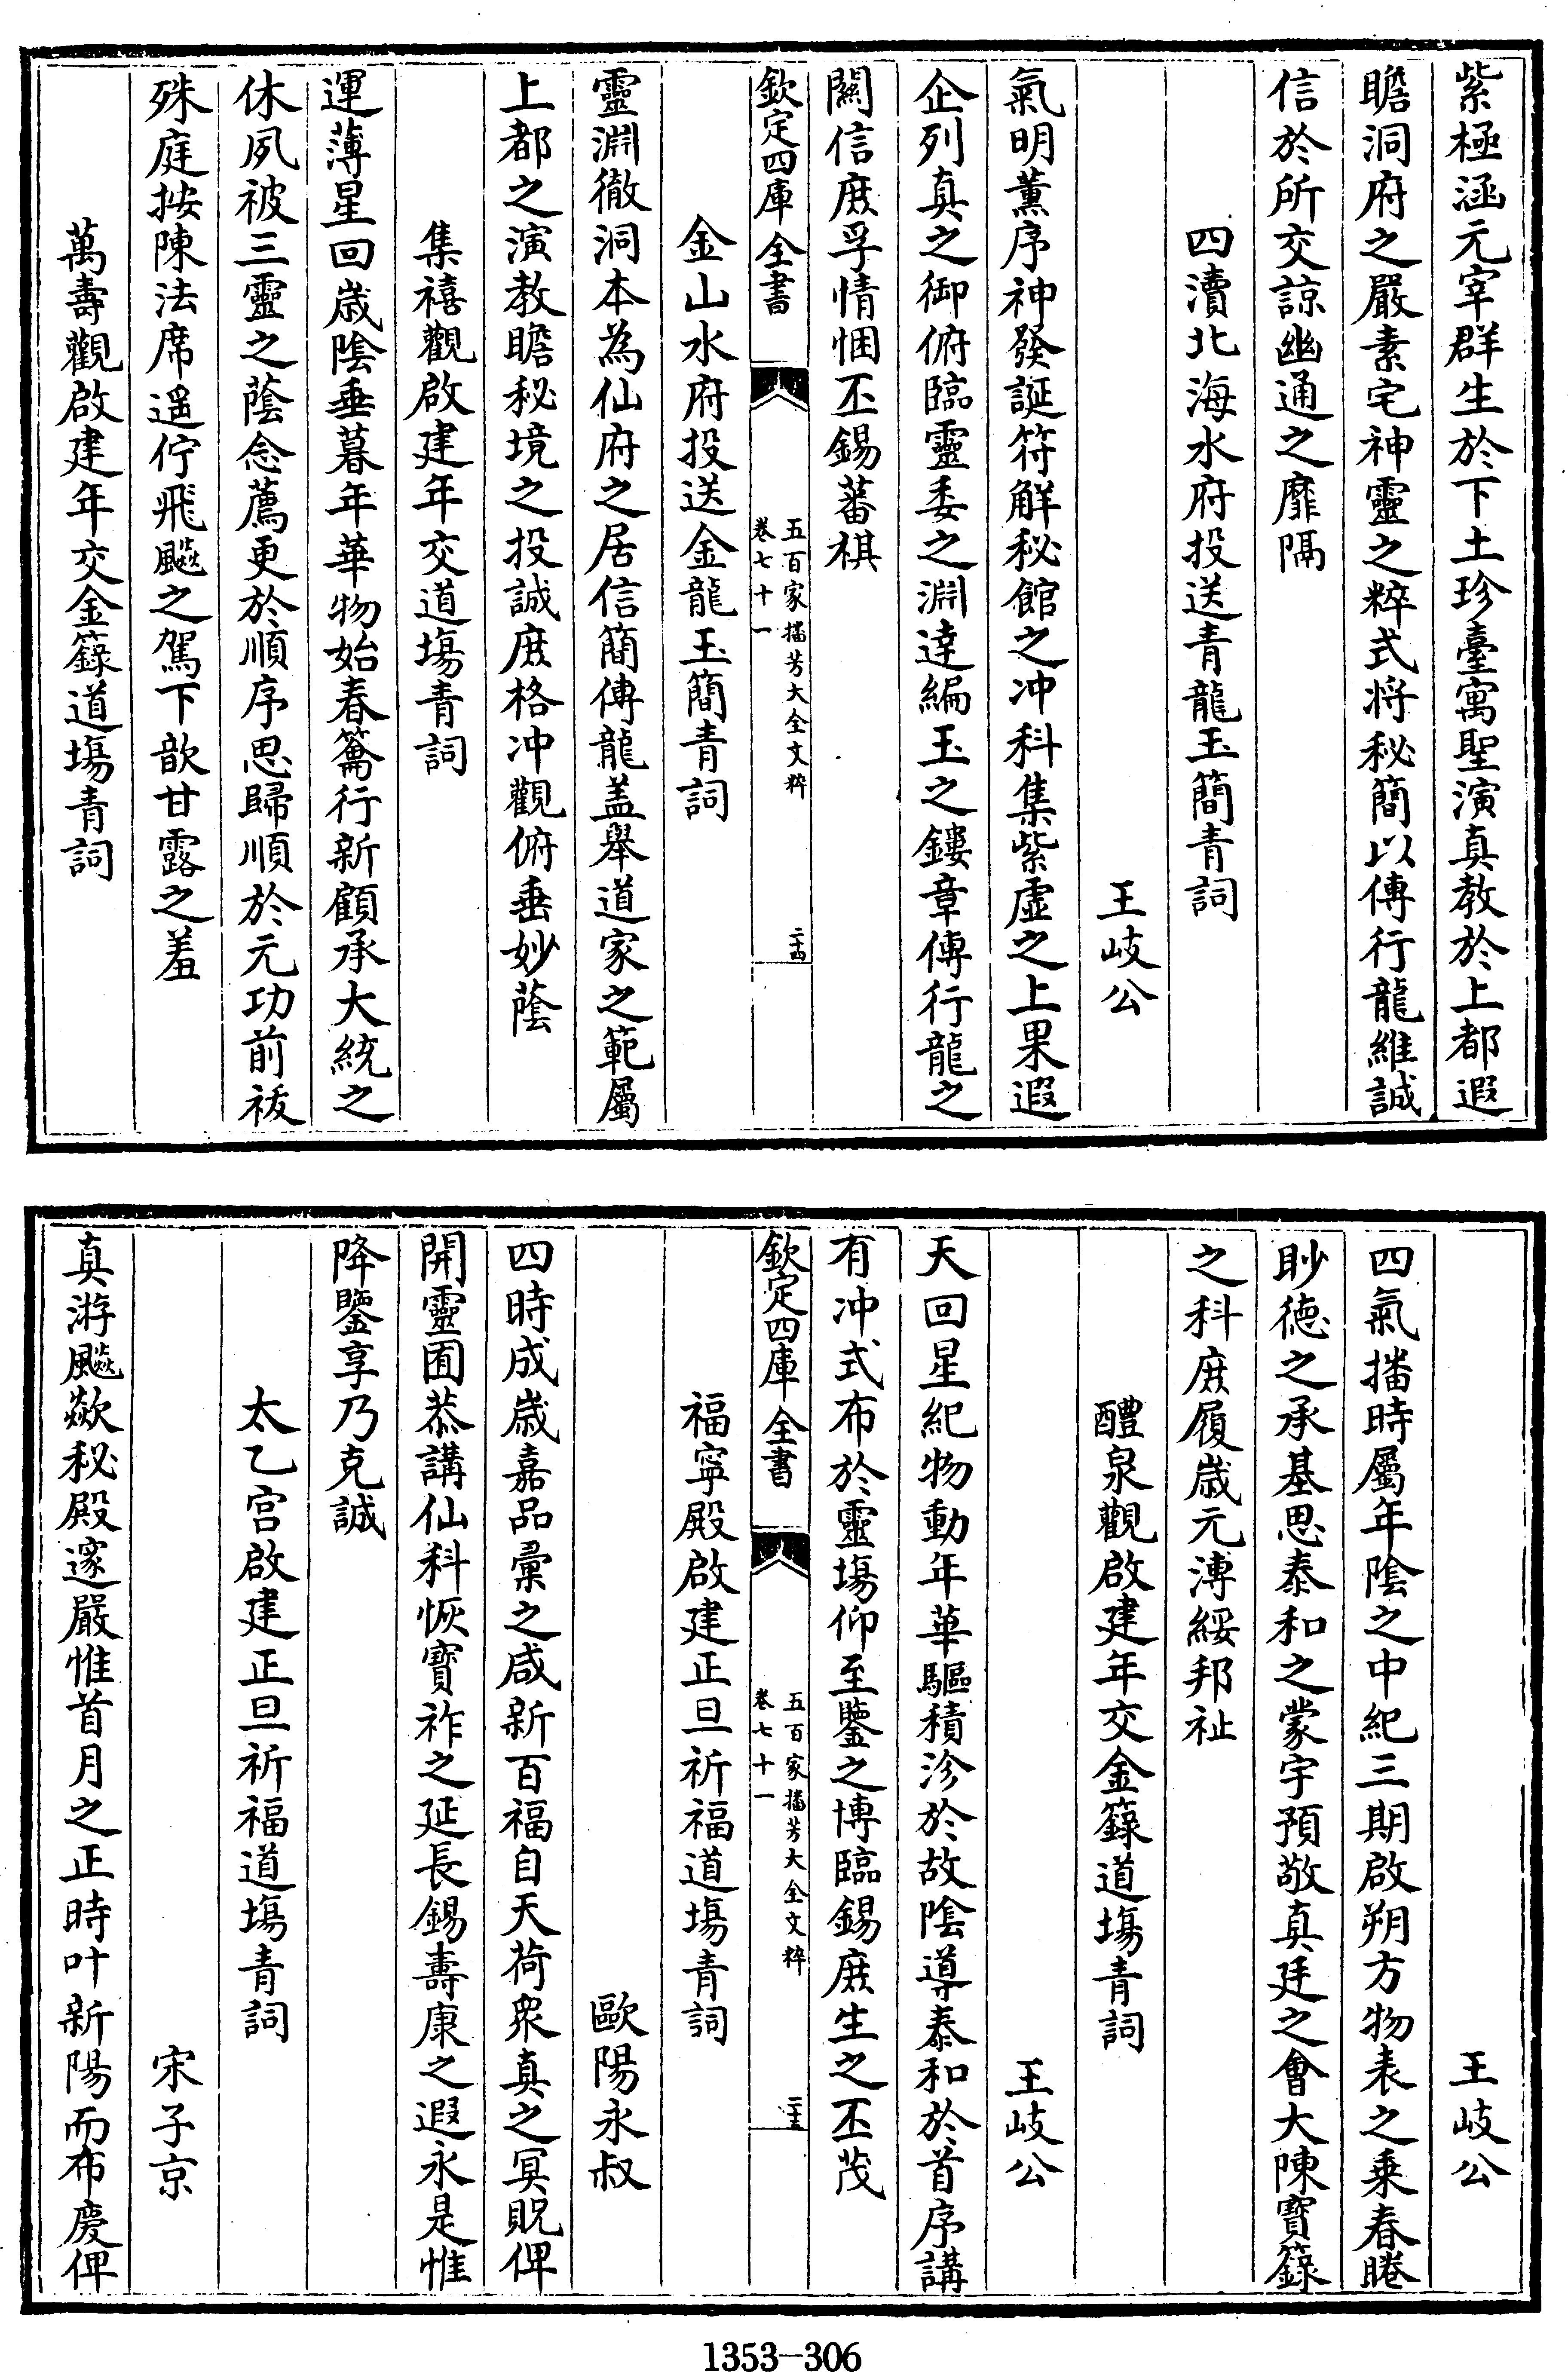 紫極涵元宰群生於下土珍臺寓聖演真教於上都遐
瞻洞府之嚴素宅神靈之粹式將秘簡以傳行龍維誠
信於所交諒幽通之靡隔
四瀆北海水府投送青龍玉簡青詞
王岐公
氣明薰序神發誕符解秘館之冲科集紫虛之上果遐
企列真之御俯臨靈委之淵達編玉之鏤章傳行龍之
關信庶孚情悃丕錫蕃祺
欽定四庫全書
五百家播芳大全文粹
卷七十一
二十四
金山水府投送金龍玉簡青詞
靈淵徹洞本為仙府之居信簡傳龍盖舉道家之範屬
上都之演教瞻秘境之投誠庶格冲觀俯垂妙蔭
集禧觀啟建年交道場青詞
運薄星回歲陰垂暮年華物始春籥行新顧承大統之
休夙被三靈之蔭念薦更於順序思歸順於元功前祓
殊庭按陳法席遥佇飛飈之駕下歆甘露之羞
萬壽觀啟建年交金籙道場青詞
王岐公
四氣播時屬年陰之中紀三期啟朔方物表之乗春睠
眇德之承基思泰和之蒙宇預敬真廷之會大陳寶籙
之科庶履歲元溥綏邦祉
醴泉觀啟建年交金籙道場青詞
王岐公
天回星紀物動年華驅積沴於故陰導泰和於首序講
有冲式布於靈場仰至鑒之博臨錫庶生之丕茂
欽定四庫全書
五百家播芳大全文粹
卷七十一
二十五
福寧殿啟建正旦祈福道場青詞
歐陽永叔
四時成歲嘉品彙之咸新百福自天荷衆真之冥貺俾
開靈囿恭講仙科恢寶祚之延長錫壽康之遐永是惟
降鑒享乃克誠
太乙宫啟建正旦祈福道場青詞
宋子京
真游飈歘秘殿邃嚴惟首月之正時叶新陽而布慶俾
1353-306